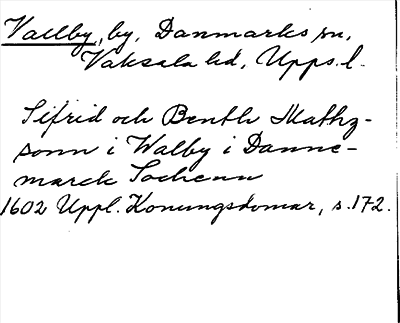 Vallby, by, Danmarks sn,
Vaksala hd, Upps. l.
Sifrid och Benth Mathz-
sonn i Walby i Danne-
marck Sochenn
1602 Uppl. Konungsdomar, s. 172.